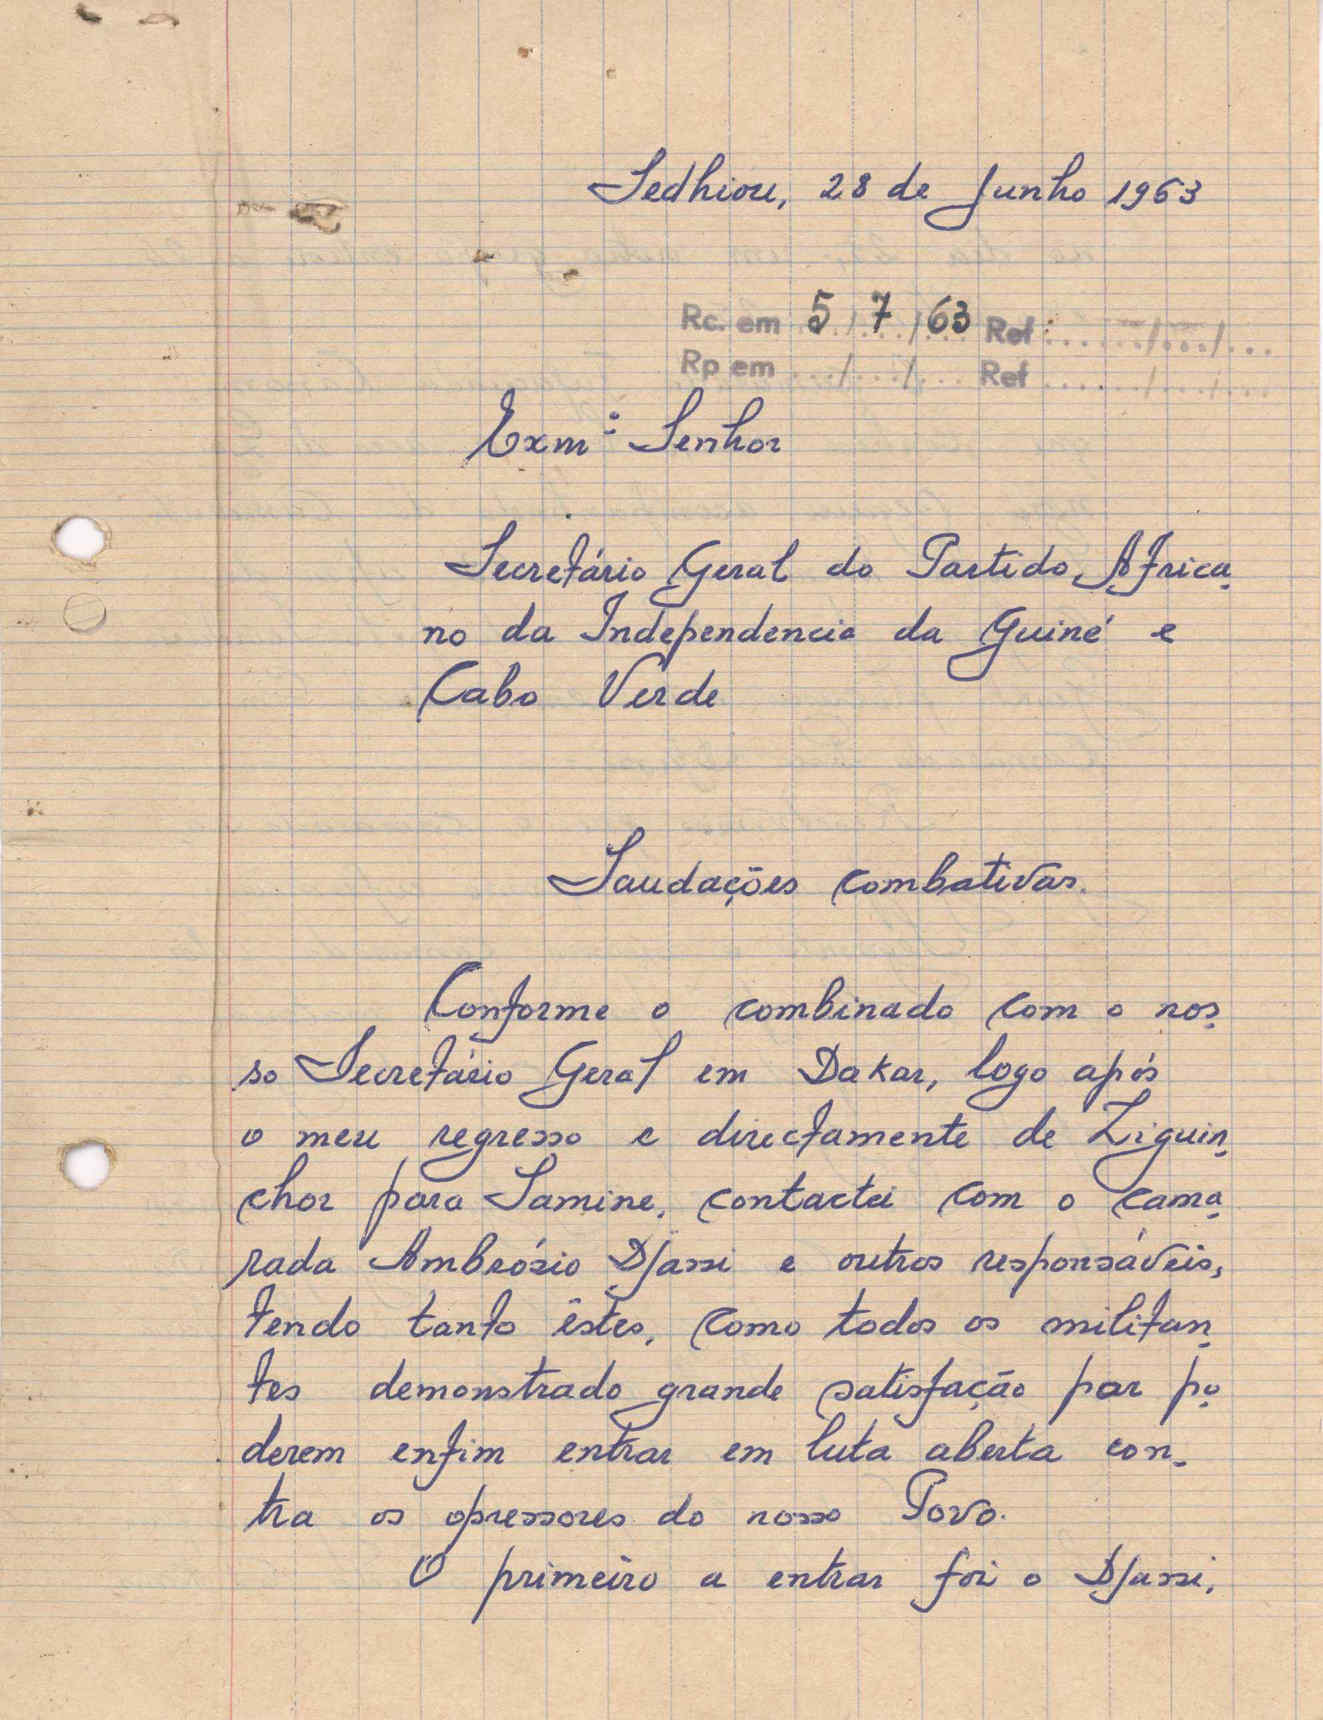 Sedhiou, 28 de Junho 1963
Rc. em 5/7/63 Ref:....../.../...
Rp em .../.../... Ref ....../.../...
Exmº Senhor
Secretário Geral do Partido Africa-
no da Independencia da Guiné e
Cabo Verde
Saudações combativas.
Conforme o combinado com o nos-
so Secretário Geral em Dakar, logo após
o meu regresso e directamente de Ziguin-
chor para Samine, contactei com o cama-
rada Ambrósio Djassi e outros responsáveis,
tendo tanto êstes, como todos os militan-
tes demonstrado grande satisfação por po-
derem enfim entrar em luta aberta con-
tra os opressores do nosso Povo.
O primeiro a entrar foi o Djassi,